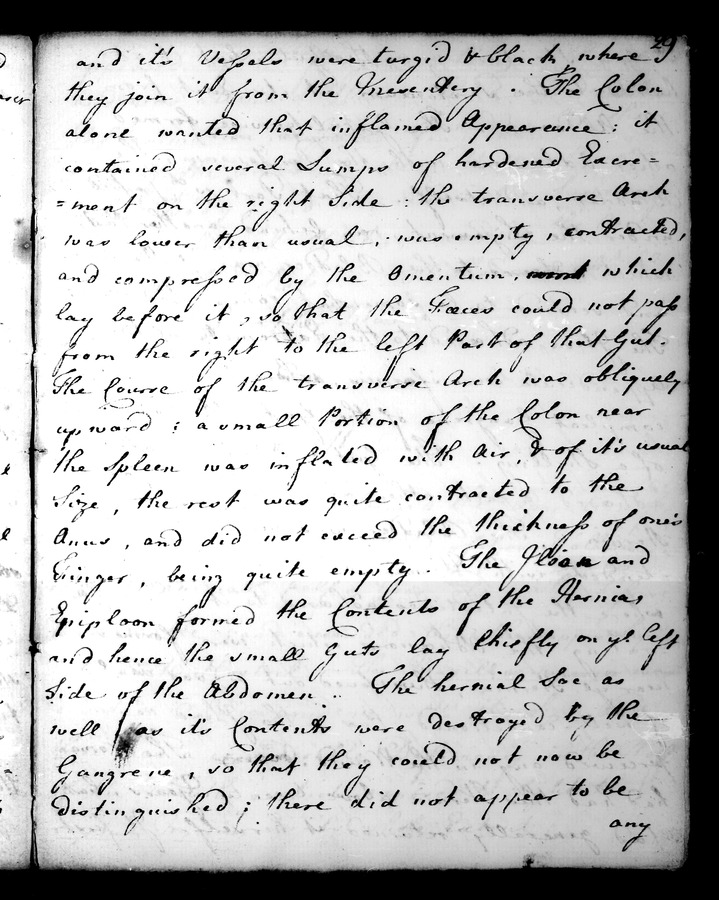 29
and it's Vessels were turgid & black where
they join it from the Mesentery . The Colon
alone wanted that inflamed Appearance ; it
contained several Lumps of hardened Excre=
=ment on the right Side : the transverse Arch
was lower than usual , was empty , contracted,
and compressed by the Omentum, which
lay before it , so that the Fæces could not pass
from the right to the left Part of that Gut.
The Course of the transverse Arch was obliquely
upward ; a small Portion of the Colon near
the Spleen was inflated with Air, & of it's usual
Size , the rest was quite contracted to the
Anus , and did not exceed the thickness of one's
Finger , being quite empty . The and
Epiploon formed the Contents of the Hernia,
and hence the small Guts lay chiefly on ye. left
Side of the Abdomen . The hernial Sac as
well as it's Contents were destroyed by the
Gangrene , so that they could not now be
distinguished ; there did not appear to be
any